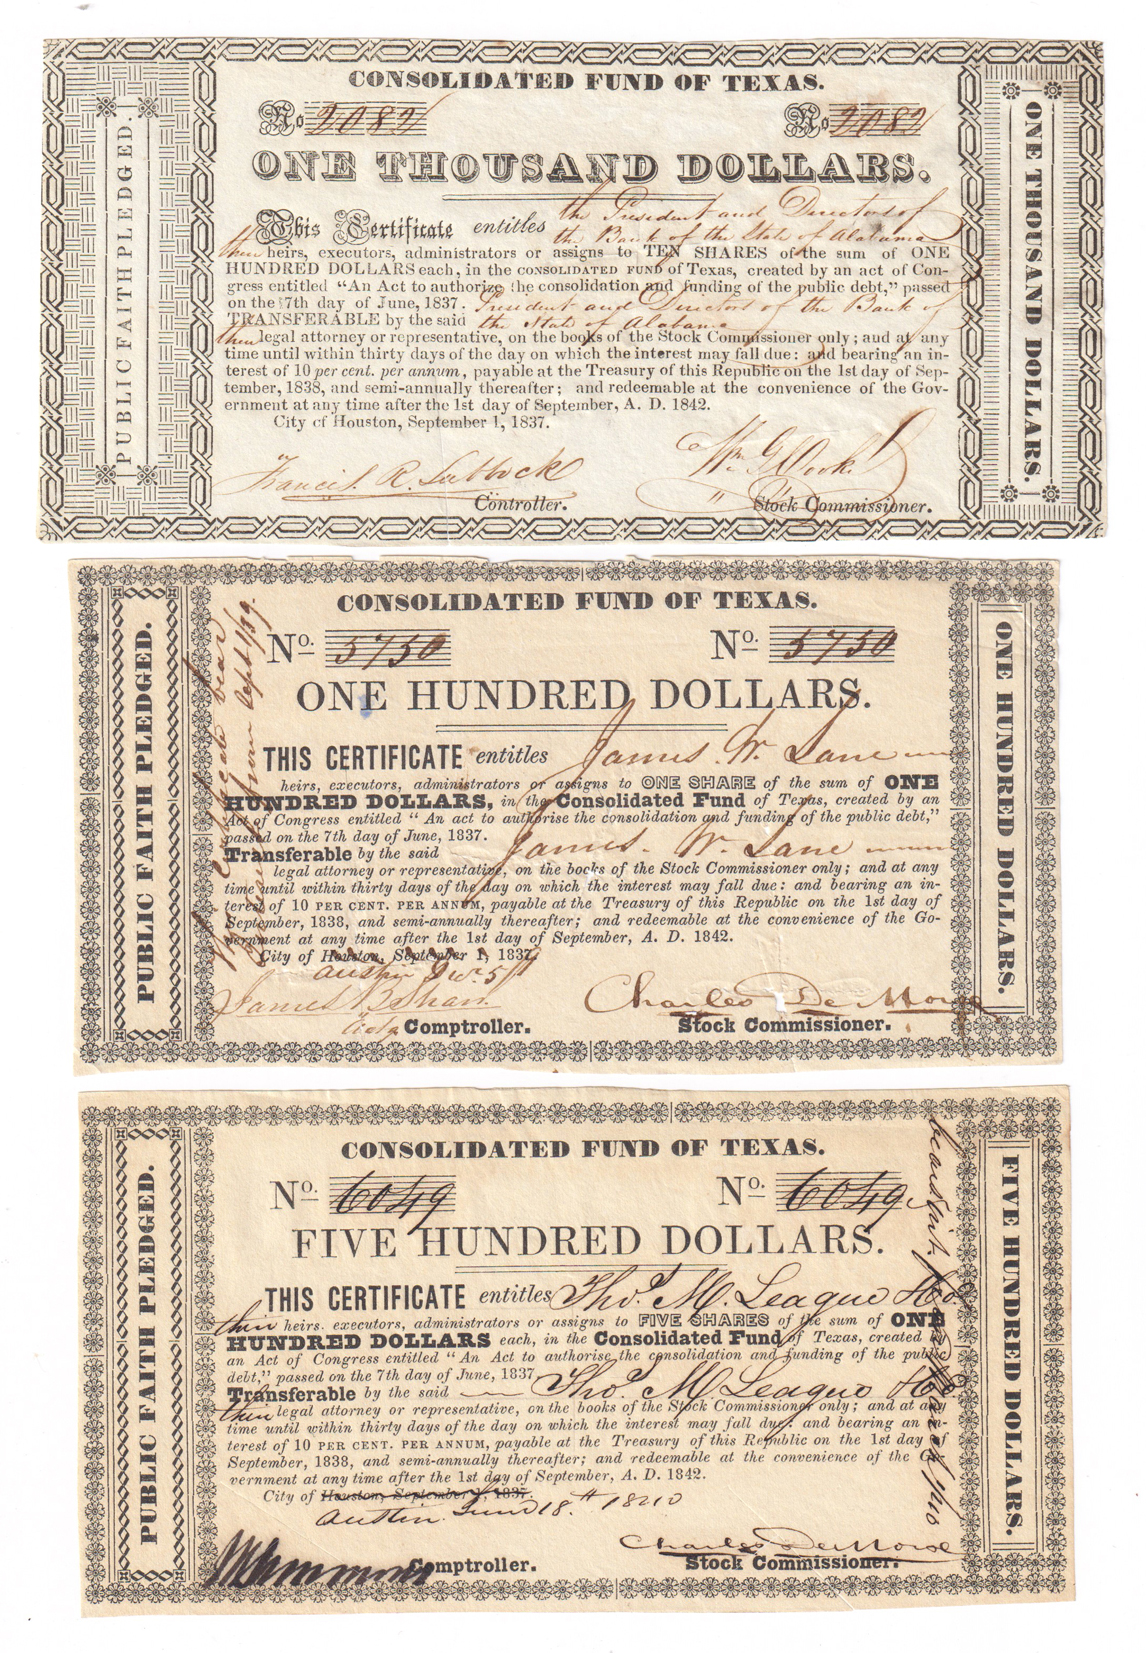 CONSOLIDATED FUND OF TEXAS.
No 2082 No 2082
ONE THOUSAND DOLLARS.
This Certificate entitles the President and Directors of
the Bank of the State of Alabama
their heirs, executors, administrators or assigns to TEN SHARES of the sum of ONE
HUNDRED DOLLARS each, in the CONSOLIDATED FUND of Texas, created by an act of Con-
gress entitled “An Act to authorize the consolidation and funding of the public debt,” passed
on the 7th day of June, 1837. President and Directors of the Bank of
TRANSFERABLE by the said the State of Alabama
their legal attorney or representative, on the books of the Stock Commissioner only; and at any
time until within thirty days of the day on which the interest may fall due: and bearing an in-
terest of 10 per cent. per annum, payable at the Treasury of this Republic on the 1st day of Sep-
tember, 1838, and semi-annually thereafter; and redeemable at the convenience of the Gov-
ernment at any time after the 1st day of September, A. D. 1842.
City of Houston, September 1, 1837.
Francis R. Lubbock
Controller.
Wm G Cooke
Stock Commissioner.
PUBLIC FAITH PLEDGED.
ONE THOUSAND DOLLARS.
CONSOLIDATED FUND OF TEXAS.
No. 5750 No. 5750
ONE HUNDRED DOLLARS.
THIS CERTIFICATE entitles James W. Lane
heirs, executors, administrators or assigns to ONE SHARE of the sum of ONE
HUNDRED DOLLARS, in the Consolidated Fund of Texas, created by an
Act of Congress entitled “An act to authorise the consolidation and funding of the public debt,”
passed on the 7th day of June, 1837.
Transferable by the said James W. Lane
legal attorney or representative, on the books of the Stock Commissioner only; and at any
time until within thirty days of the day on which the interest may fall due: and bearing an in-
terest of 10 PER CENT. PER ANNUM, payable at the Treasury of this Republic on the 1st day of
September, 1838, and semi-annually thereafter; and redeemable at the convenience of the Go-
vernment at any time after the 1st day of September, A. D. 1842.
City of Houston, September 1, 1837.
Austin
James B Shaw
Actg Comptroller.
Charles De Morse
Stock Commissioner.
PUBLIC FAITH PLEDGED.
ONE HUNDRED DOLLARS.
from Sept 1/39.
CONSOLIDATED FUND OF TEXAS.
No. 6049 No. 6049
FIVE HUNDRED DOLLARS.
THIS CERTIFICATE entitles Thos. M. League & Co.
their heirs. executors, administrators or assigns to FIVE SHARES of the sum of ONE
HUNDRED DOLLARS each, in the Consolidated Fund of Texas, created
an Act of Congress entitled “An Act to authorise the consolidation and funding of the public
debt,” passed on the 7th day of June, 1837
Transferable by the said Thos. M League & Co
their legal attorney or representative, on the books of the Stock Commissioner only; and at any
time until within thirty days of the day on which the interest may fall due: and bearing an in-
terest of 10 PER CENT. PER ANNUM, payable at the Treasury of this Republic on the 1st day of
September, 1838, and semi-annually thereafter; and redeemable at the convenience of the Go-
vernment at any time after the 1st day of September, A. D. 1842.
City of Houston, September 1, 1837.
Austin. June 18th 1840
Comptroller.
Charles DeMorse
Stock Commissioner.
PUBLIC FAITH PLEDGED.
FIVE HUNDRED DOLLARS.